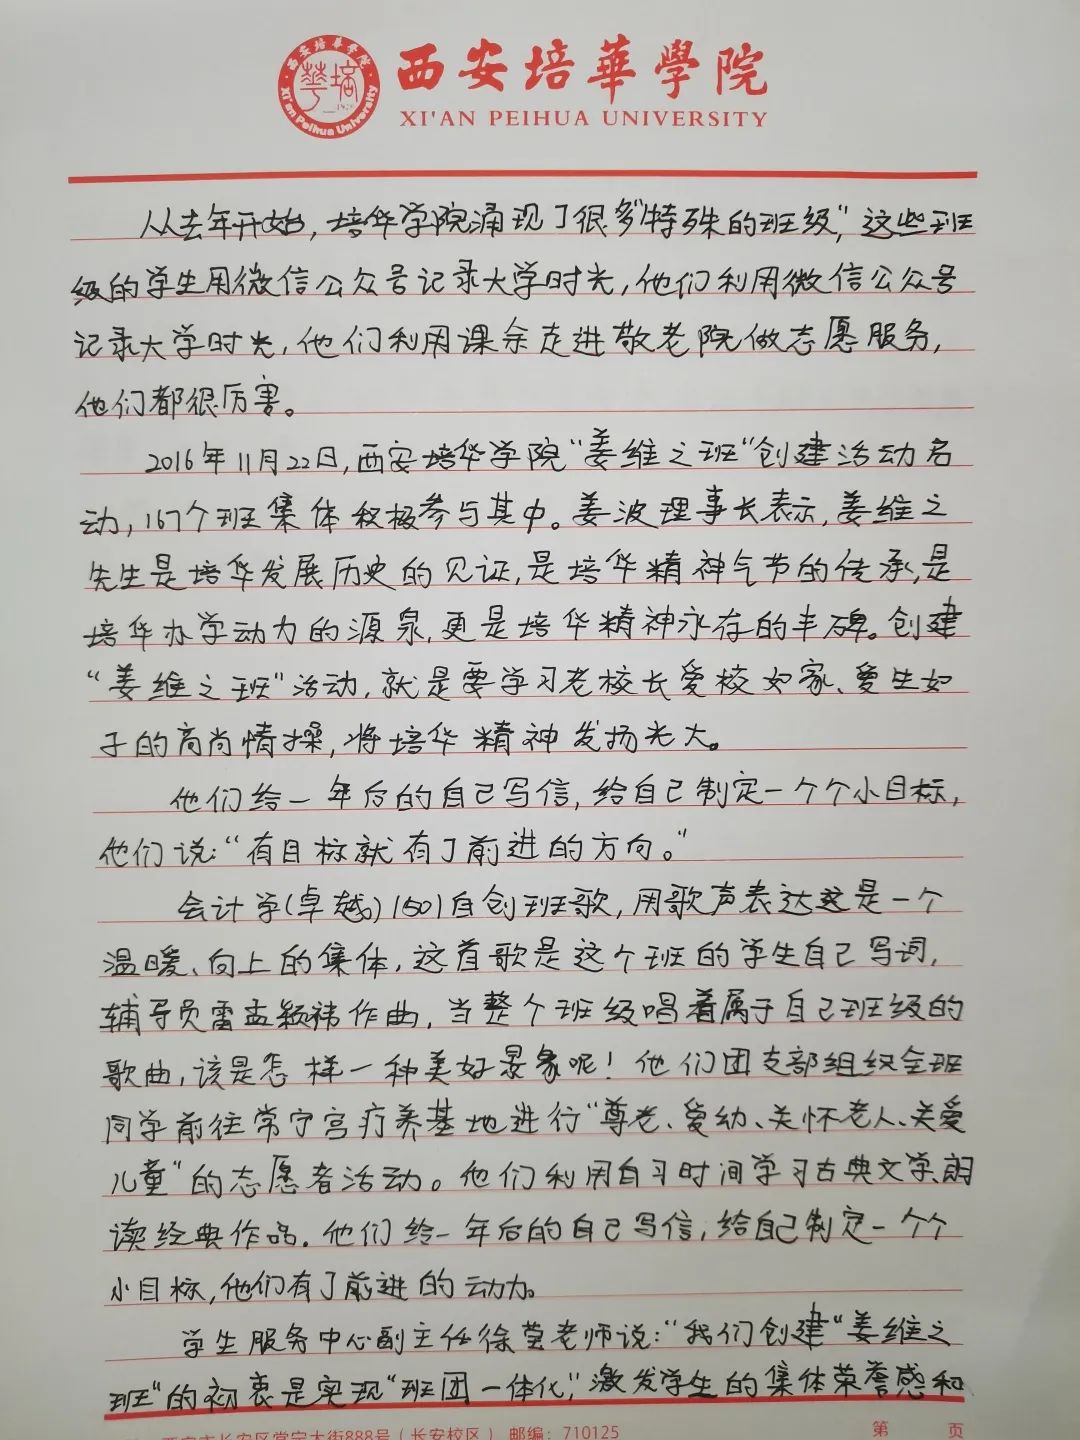 西安培華學院
XI'AN PEIHUA UNIVERSITY
西安培華學院
培華
1928
Xi'an Peihua University
从去年开始，培华学院涌现了很多“特殊的班级”，这些班
级的学生用微信公众号记录大学时光，他们利用微信公众号
记录大学时光，他们利用课余走进敬老院做志愿服务，
他们都很厉害。
2016年11月22日，西安培华学院“姜维之班”创建活动名
动，167个班集体积极参与其中。姜波理事长表示，姜维之
先生是培华发展历史的见证，是培华精神气节的传承，是
培华办学动力的源泉，更是培华精神永存的丰碑。创建
“姜维之班”活动，就是要学习老校长爱校如家、爱生如
子的高尚情操，将培华精神发扬光大。
他们给一年后的自己写信，给自己制定一个个小目标，
他们说：“有目标就有了前进的方向。”
会计学(卓越)1501自创班歌，用歌声表达这是一个
温暖、向上的集体，这首歌是这个班的学生自己写词，
辅导员雷孟颖祎作曲，当整个班级唱着属于自己班级的
歌曲，该是怎样一种美好景象呢！他们团支部组织全班
同学前往常宁宫疗养基地进行“尊老、爱幼、关怀老人、关爱
儿童”的志愿者活动。他们利用自习时间学习古典文学、朗
读经典作品。他们给一年后的自己写信，给自己制定一个个
小目标，他们有了前进的动力。
学生服务中心副主任徐莹老师说：“我们创建“姜维之
班”的初衷是实现“班团一体化”，激发学生的集体荣誉感和
西安市长安区常宁大街888号（长安校区） 邮编：710125
第 页